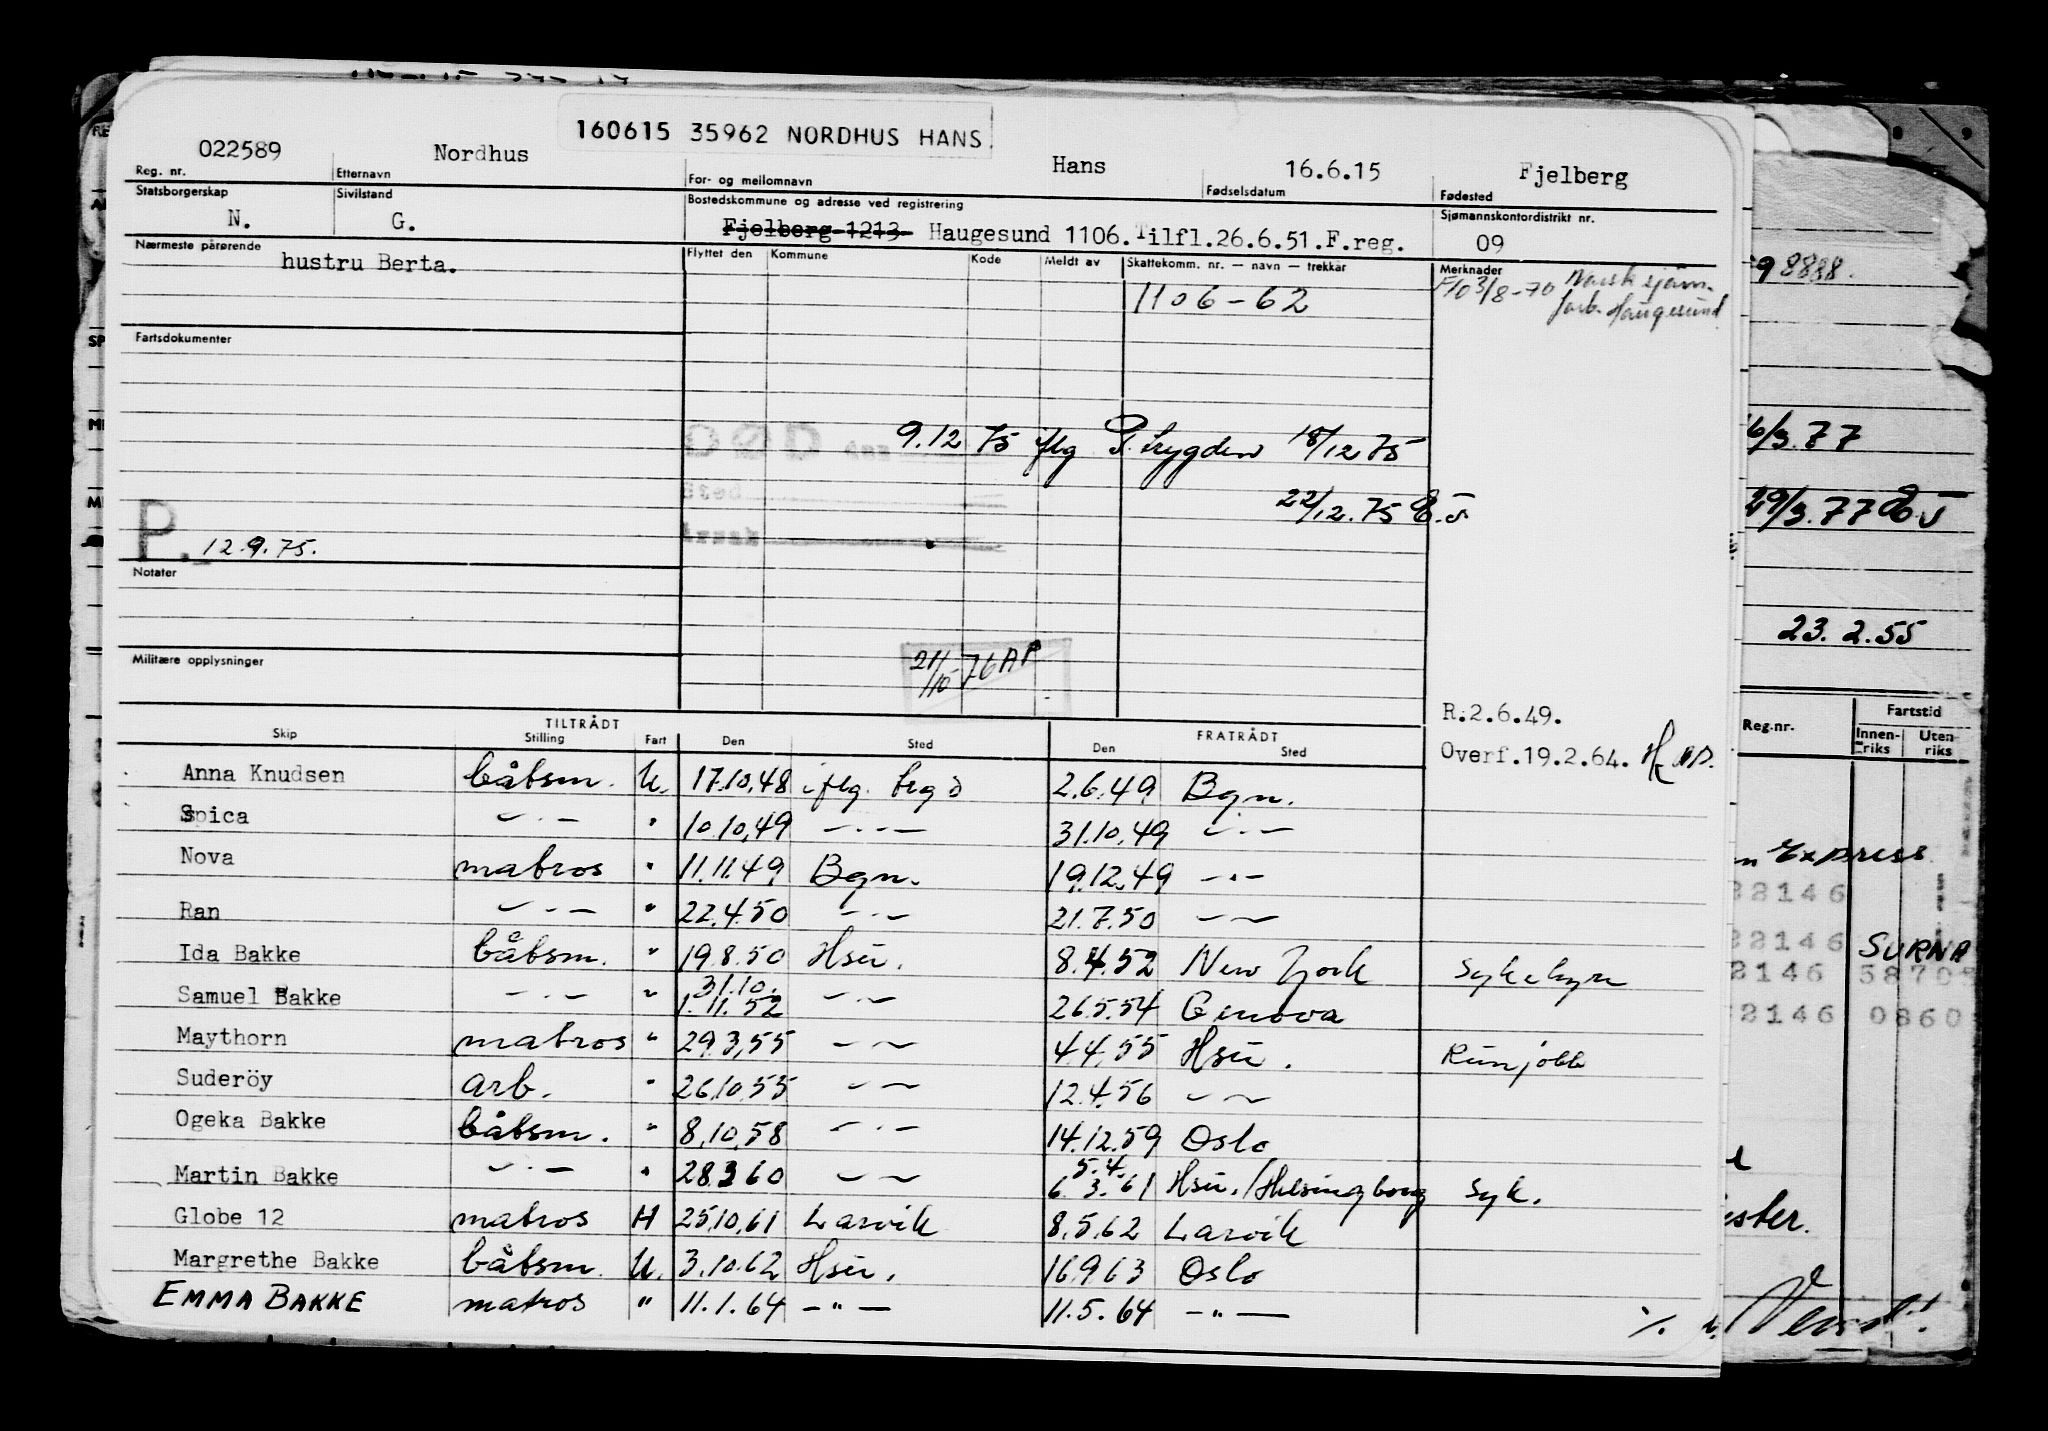 160615 35962 NORDHUS HANS
022589 Nordhus Hans 16.6.15 Fjelberg
Reg. nr. Etternavn For- og mellomnavn Fødselsdatum Fødested
Statsborgerskap Sivilstand Bostedskommune og adresse ved registrering Sjømannskontordistrikt nr.
N. G. Fjelberg 1213 Haugesund 1106. Tilfl.26.6.51.F.reg. 09
Nærmeste pårørende Flyttet den Kommune Kode Meldt av Skattekomm. nr. — navn — trekkår Merknader
hustru Berta.
1106-62 3/8-70 Norsk sjøm.
forb. Haugesund
Fartsdokumenter
98888.
9.12 75 iflg P. trygden 18/12 75
6/3.77
22/12.75
29/3.77
P. 12.9.75.
Notater
23.2.55
Militære opplysninger
21/10-76 AP
R.2.6.49.
Overf.19.2.64.
Reg.nr. Fartstid
Innenriks Utenriks
TILTRÅDT FRATRÅDT
Skip Stilling Fart Den Sted Den Sted
Anna Knudsen båtsm. U. 17.10.48 iflg. 2.6.49 Bgn.
Spica —.— " 10.10.49 —.— 31.10.49 —.—
Nova matros " 11.11.49 Bgn. 19.12.49 —.—
Express
Ran —.— " 22.4.50 —.— 21.7.50 —.—
32146
Ida Bakke båtsm. " 19.8.50 Hsu. 8.4.52 New York Sykehym
32146 SURNA
Samuel Bakke —.— " 31.10. 1.11.52 —.— 26.5.54 Genova
2146 5870
Maythorn matros " 29.3.55 —.— 4.4.55 Hsu. Runjobb
2146 0860
Suderöy arb. " 26.10.55 —.— 12.4.56 —.—
Ogeka Bakke båtsm. " 8.10.58 —.— 14.12.59 Oslo
Martin Bakke —.— " 28.3.60 —.— 5.4. 6.3.61 Hsu./Helsingborg Syk.
Globe 12 matros H 25.10.61 Larvik 8.5.62 Larvik
Margrethe Bakke båtsm. U. 3.10.62 Hsu. 16.9.63 Oslo
EMMA BAKKE matros " 11.1.64 —"— 11.5.64 —"—